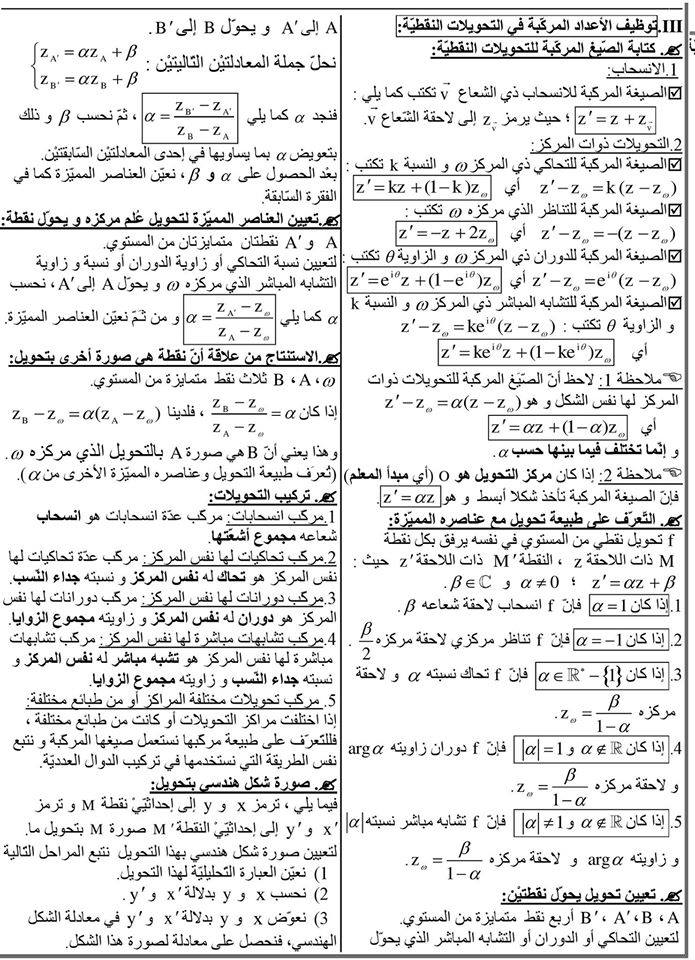 III. توظيف الأعداد المركّبة في التحويلات النقطيّة:
كتابة الصيّغ المركّبة للتحويلات النقطيّة:
1.الانسحاب:
☑الصيغة المركبة للانسحاب ذي الشعاع v⃗ تكتب كما يلي :
z′ = z + z_v⃗ ؛ حيث يرمز z_v⃗ إلى لاحقة الشّعاع v⃗.
2.التحويلات ذوات المركز:
☑الصيغة المركبة للتحاكي ذي المركز ω و النسبة k تكتب :
z′ − z_ω = k(z − z_ω) أي z′ = kz + (1−k)z_ω
☑الصيغة المركبة للتناظر الذي مركزه ω تكتب :
z′ − z_ω = −(z − z_ω) أي z′ = −z + 2z_ω
☑الصيغة المركبة للدوران ذي المركز ω و الزاوية θ تكتب :
z′ − z_ω = e^{iθ}(z − z_ω) أي z′ = e^{iθ}z + (1−e^{iθ})z_ω
☑الصيغة المركبة للتشابه المباشر ذي المركز ω و النسبة k
و الزاوية θ تكتب : z′ − z_ω = ke^{iθ}(z − z_ω)
أي z′ = ke^{iθ}z + (1−ke^{iθ})z_ω
☜ملاحظة 1: لاحظ أنّ الصيّغ المركبّة للتحويلات ذوات
المركز لها نفس الشكل و هو z′ − z_ω = α(z − z_ω)
أي z′ = αz + (1−α)z_ω
و إنّما تختلف فيما بينها حسب α.
☜ملاحظة 2: إذا كان مركز التحويل هو O (أي مبدأ المعلم)
فإنّ الصيغة المركبة تأخذ شكلا أبسط و هو z′ = αz.
التّعرّف على طبيعة تحويل مع عناصره المميّزة:
f تحويل نقطي من المستوي في نفسه يرفق بكل نقطة
M ذات اللاحقة z ، النقطة M′ ذات اللاحقة z′ حيث :
z′ = αz + β ؛ α ≠ 0 و β ∈ ℂ.
1. إذا كان α = 1 فإنّ f انسحاب لاحقة شعاعه β.
2. إذا كان α = −1 فإنّ f تناظر مركزي لاحقة مركزه β/2.
3. إذا كان α ∈ ℝ* − {1} فإنّ f تحاك نسبته α و لاحقة
مركزه z_ω = β/(1−α).
4. إذا كان α ∉ ℝ و |α| = 1 فإنّ f دوران زاويته argα
و لاحقة مركزه z_ω = β/(1−α).
5. إذا كان α ∉ ℝ و |α| ≠ 1 فإنّ f تشابه مباشر نسبته |α|
و زاويته argα و لاحقة مركزه z_ω = β/(1−α).
تعيين تحويل يحوّل نقطتيْن:
A ، B ، A′ ، B′ أربع نقط متمايزة من المستوي.
لتعيين التحاكي أو الدوران أو التشابه المباشر الذي يحوّل
A إلى A′ و يحوّل B إلى B′.
نحلّ جملة المعادلتيْن التّاليتيْن : { z_A′ = αz_A + β
z_B′ = αz_B + β
فنجد α كما يلي α = (z_B′ − z_A′)/(z_B − z_A) ، ثمّ نحسب β و ذلك
بتعويض α بما يساويها في إحدى المعادلتيْن السّابقتيْن.
بعْد الحصول على α و β ، نعيّن العناصر المميّزة كما في
الفقرة السّابقة.
تعيين العناصر المميّزة لتحويل عُلم مركزه و يحوّل نقطة:
A و A′ نقطتان متمايزتان من المستوي.
لتعيين نسبة التحاكي أو زاوية الدوران أو نسبة و زاوية
التشابه المباشر الذي مركزه ω و يحوّل A إلى A′، نحسب
α كما يلي α = (z_A′ − z_ω)/(z_A − z_ω) و من ثمّ نعيّن العناصر المميّزة.
الاستنتاج من علاقة أنّ نقطة هي صورة أخرى بتحويل:
ω ، A ، B ثلاث نقط متمايزة من المستوي.
إذا كان (z_B − z_ω)/(z_A − z_ω) = α ، فلدينا z_B − z_ω = α(z_A − z_ω)
وهذا يعني أنّ B هي صورة A بالتحويل الذي مركزه ω.
(تُعرَف طبيعة التحويل وعناصره المميّزة الأخرى من α).
تركيب التحويلات:
1.مركب انسحابات: مركّب عدّة انسحابات هو انسحاب
شعاعه مجموع أشعّتها.
2.مركب تحاكيات لها نفس المركز: مركّب عدّة تحاكيات لها
نفس المركز هو تحاك له نفس المركز و نسبته جداء النّسب.
3.مركب دورانات لها نفس المركز: مركب دورانات لها نفس
المركز هو دوران له نفس المركز و زاويته مجموع الزوايا.
4.مركب تشابهات مباشرة لها نفس المركز: مركب تشابهات
مباشرة لها نفس المركز هو تشبه مباشر له نفس المركز و
نسبته جداء النّسب و زاويته مجموع الزوايا.
5. مركب تحويلات مختلفة المراكز أو من طبائع مختلفة:
إذا اختلفت مراكز التحويلات أو كانت من طبائع مختلفة ،
فللتعرّف على طبيعة مركبها نستعمل صيغها المركبة و نتبع
نفس الطريقة التي نستخدمها في تركيب الدوال العدديّة.
صورة شكل هندسي بتحويل:
فيما يلي ، ترمز x و y إلى إحداثيّيْ نقطة M و ترمز
x′ و y′ إلى إحداثيّيْ النقطة M′ صورة M بتحويل ما.
لتعيين صورة شكل هندسي بهذا التحويل نتبع المراحل التّالية
1) نعيّن العبارة التّحليليّة لهذا التحويل.
2) نحسب x و y بدلالة x′ و y′.
3) نعوّض x و y بدلالة x′ و y′ في معادلة الشكل
الهندسي، فنحصل على معادلة لصورة هذا الشكل.